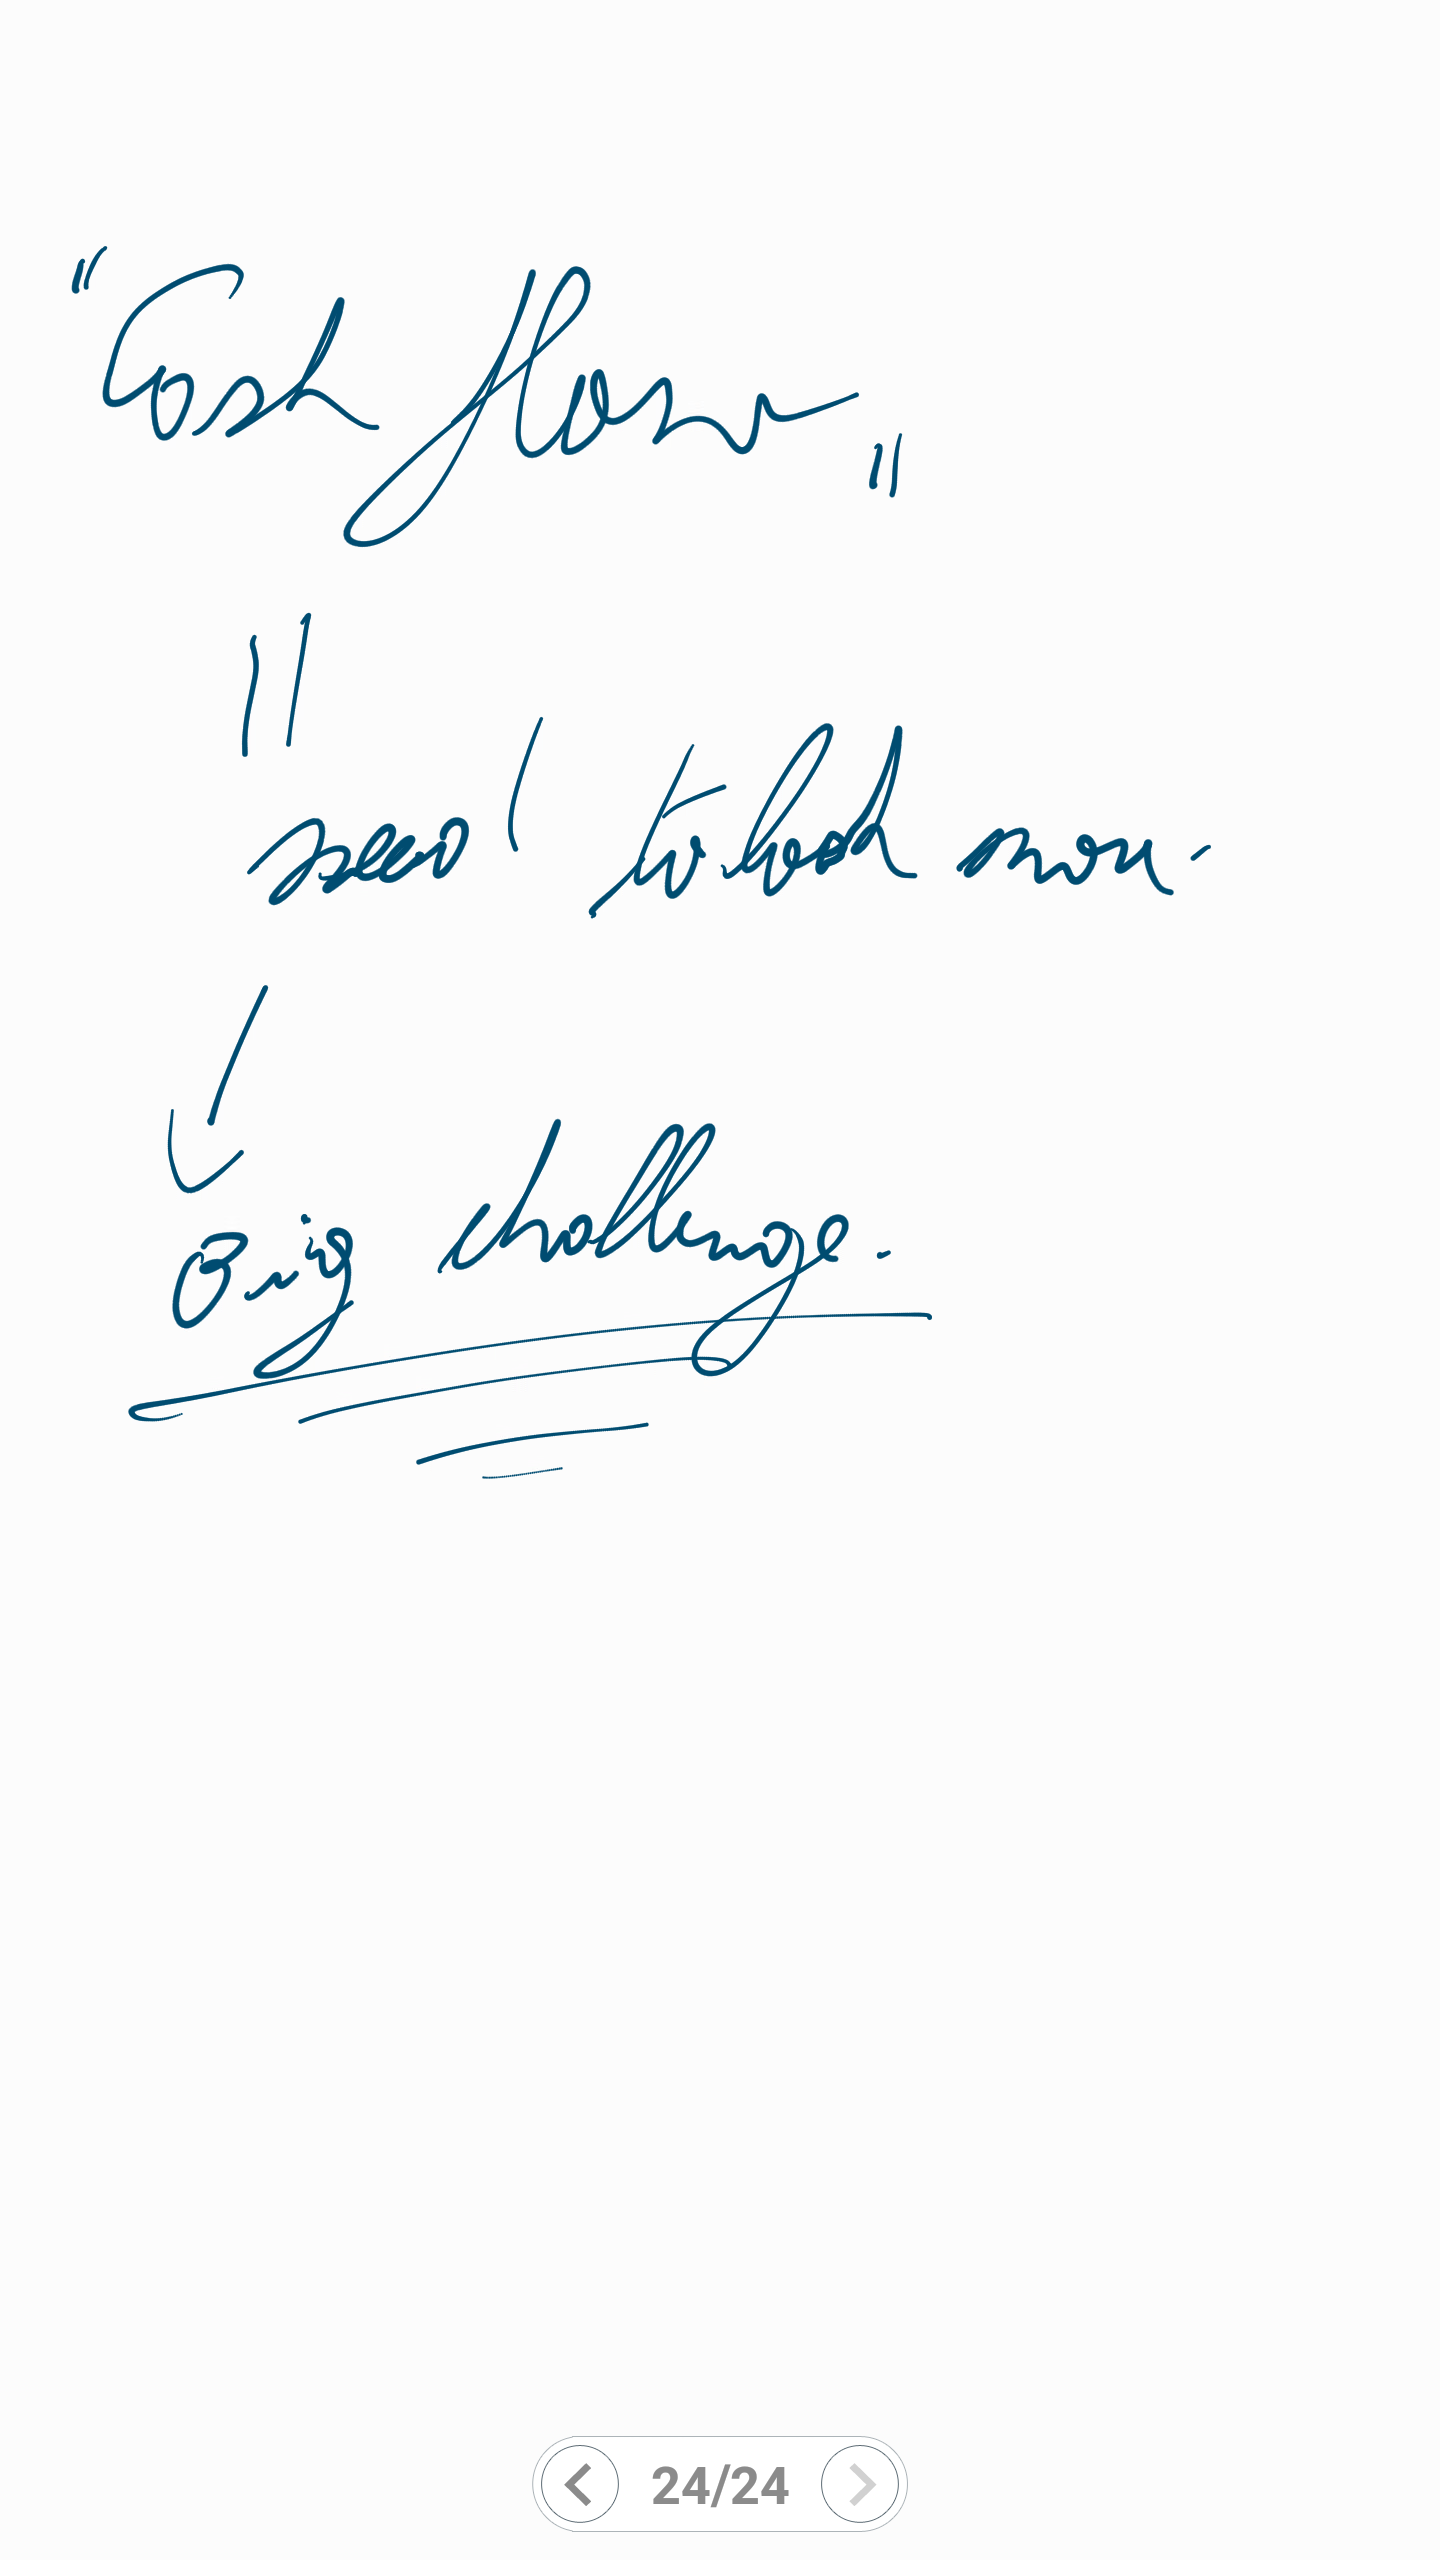 "Cash flow"
need to look more.
Big challenge.
24/24